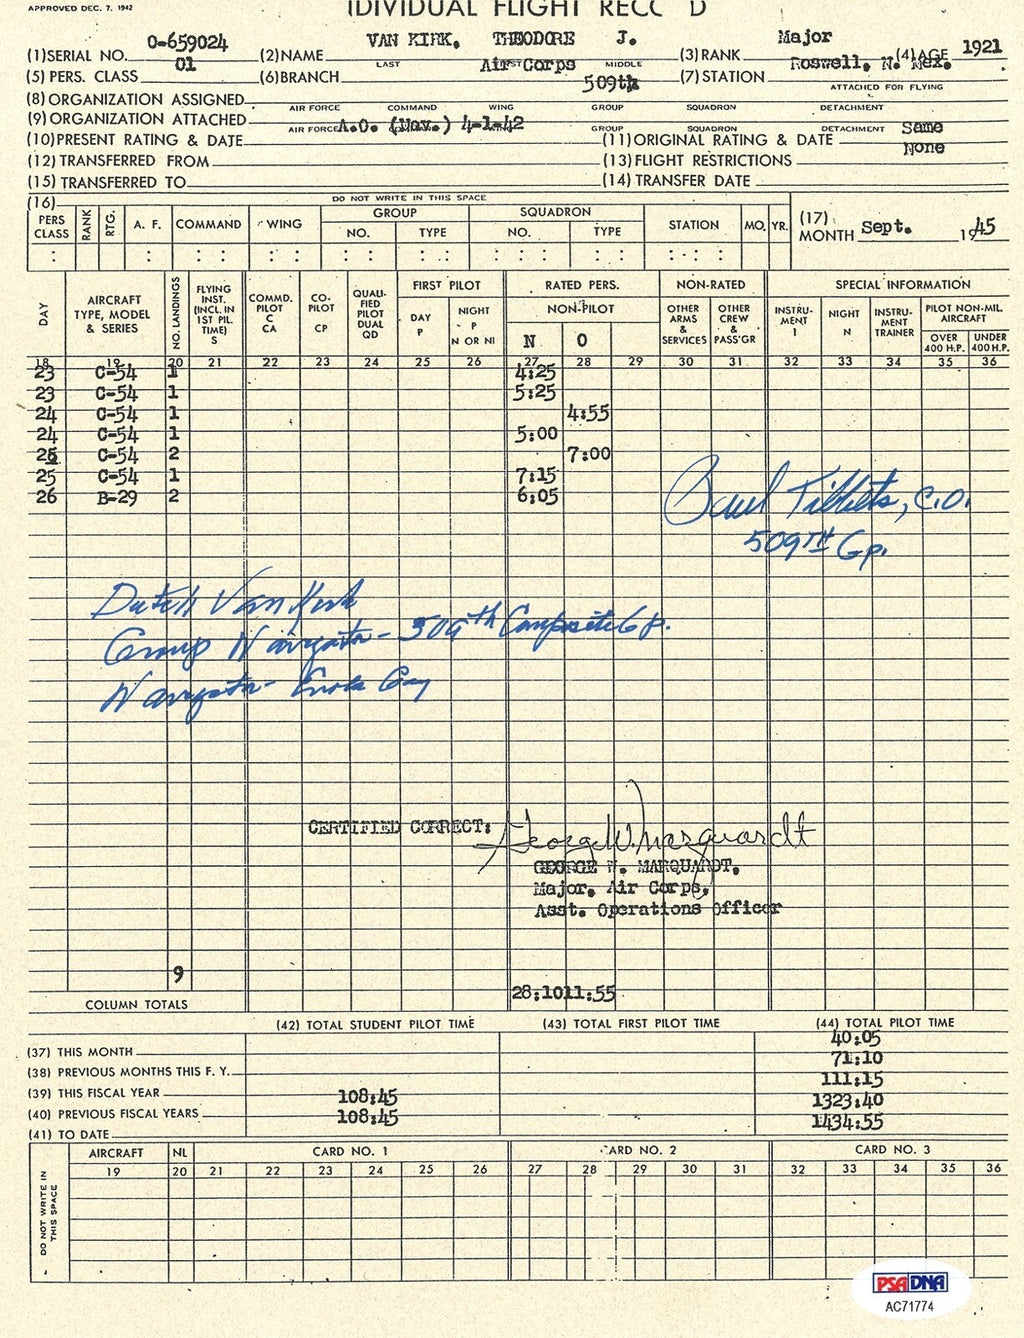 APPROVED DEC. 7, 1942
IDIVIDUAL FLIGHT REC D
(1) SERIAL NO. O-659024 (2) NAME VAN KIRK, THEODORE J. (3) RANK Major (4) AGE 1921
LAST FIRST MIDDLE
(5) PERS. CLASS 01 (6) BRANCH Air Corps (7) STATION Roswell, N. Mex.
(8) ORGANIZATION ASSIGNED 509th ATTACHED FOR FLYING
AIR FORCE COMMAND WING GROUP SQUADRON DETACHMENT
(9) ORGANIZATION ATTACHED
AIR FORCE COMMAND WING GROUP SQUADRON DETACHMENT
(10) PRESENT RATING & DATE A.O. (Nav.) 4-1-42 (11) ORIGINAL RATING & DATE Same
(12) TRANSFERRED FROM (13) FLIGHT RESTRICTIONS None
(15) TRANSFERRED TO (14) TRANSFER DATE
(16) DO NOT WRITE IN THIS SPACE
PERS CLASS RANK RTG. A. F. COMMAND WING GROUP NO. TYPE SQUADRON NO. TYPE STATION MO. YR. (17) MONTH Sept. 1945
DAY AIRCRAFT TYPE, MODEL & SERIES NO. LANDINGS FLYING INST. (INCL. IN 1ST PIL. TIME) S COMMD. PILOT C CA CO-PILOT CP QUALI-FIED PILOT DUAL QD FIRST PILOT DAY P NIGHT P N OR NI RATED PERS. NON-PILOT N O NON-RATED OTHER ARMS & SERVICES OTHER CREW & PASS'GR SPECIAL INFORMATION INSTRU-MENT I NIGHT N INSTRU-MENT TRAINER PILOT NON-MIL. AIRCRAFT OVER 400 H.P. UNDER 400 H.P.
18 19 20 21 22 23 24 25 26 27 28 29 30 31 32 33 34 35 36
23 C-54 1 4:25
23 C-54 1 5:25
24 C-54 1 4:55
24 C-54 1 5:00
25 C-54 2 7:00
25 C-54 1 7:15
26 B-29 2 6:05
Paul Tibbets, C.O.
509TH Gp.
Dutch Van Kirk
Group Navigator - 509th Composite Gp.
Navigator - Enola Gay
CERTIFIED CORRECT: George W. Marquardt
GEORGE W. MARQUARDT,
Major, Air Corps,
Asst. Operations Officer
9
COLUMN TOTALS 28:10 11:55
(42) TOTAL STUDENT PILOT TIME (43) TOTAL FIRST PILOT TIME (44) TOTAL PILOT TIME
(37) THIS MONTH 40:05
(38) PREVIOUS MONTHS THIS F. Y. 71:10
(39) THIS FISCAL YEAR 111:15
(40) PREVIOUS FISCAL YEARS 108:45 1323:40
(41) TO DATE 108:45 1434:55
DO NOT WRITE IN THIS SPACE
AIRCRAFT NL CARD NO. 1 CARD NO. 2 CARD NO. 3
19 20 21 22 23 24 25 26 27 28 29 30 31 32 33 34 35 36
PSA DNA
AC71774